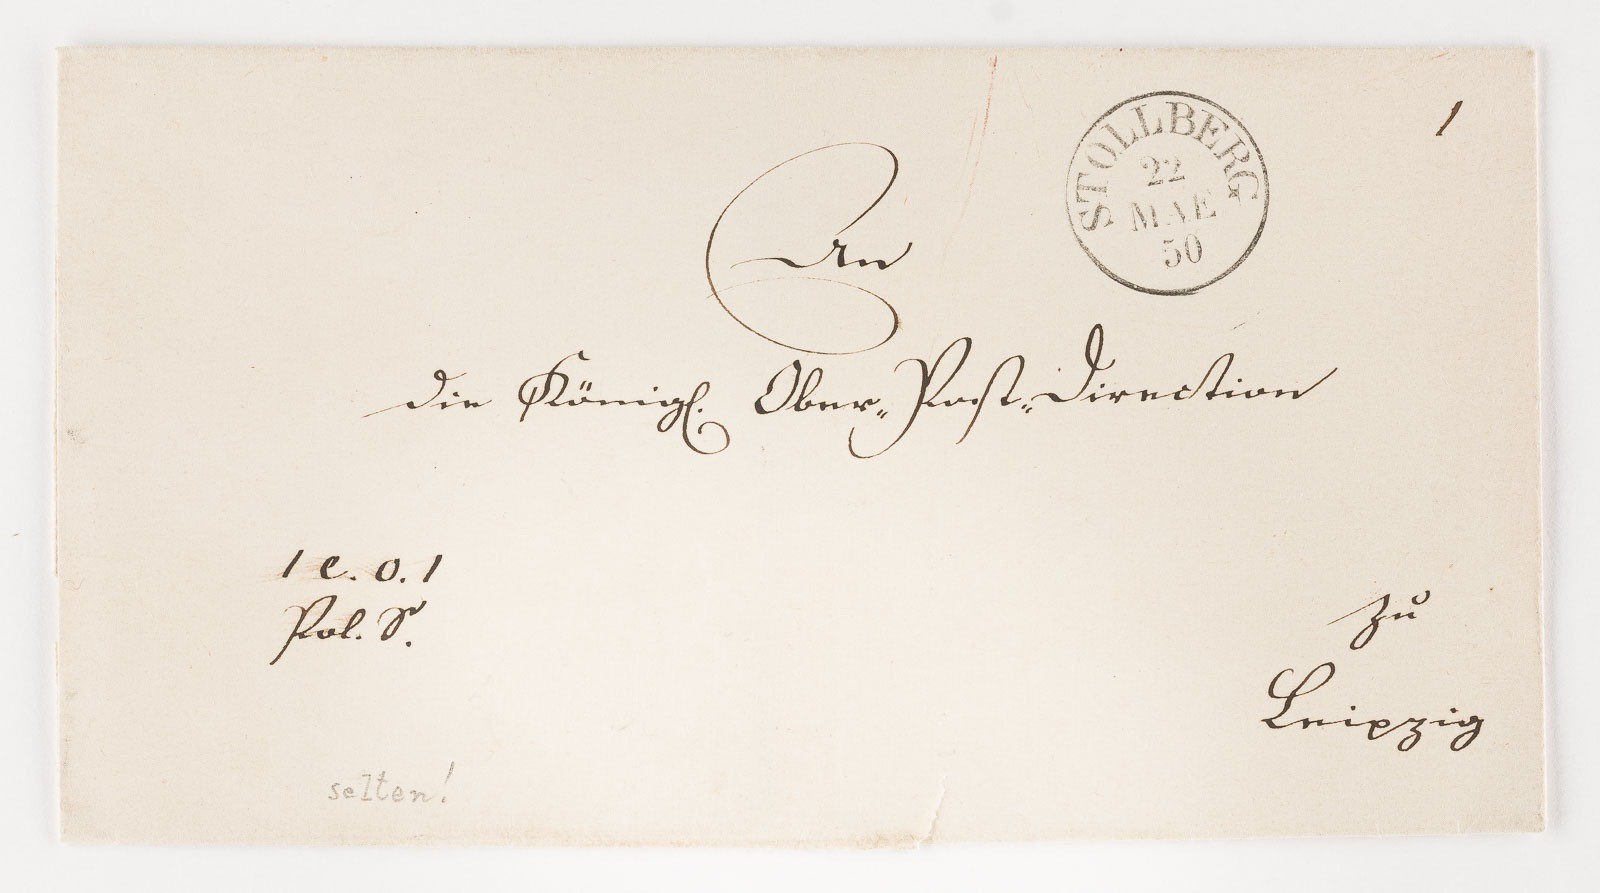 STOLLBERG
22
MAE
50
1
An
die Königl. Ober-Post-Direction
1 C. O. 1
Pol. S.
zu
Leipzig
selten!